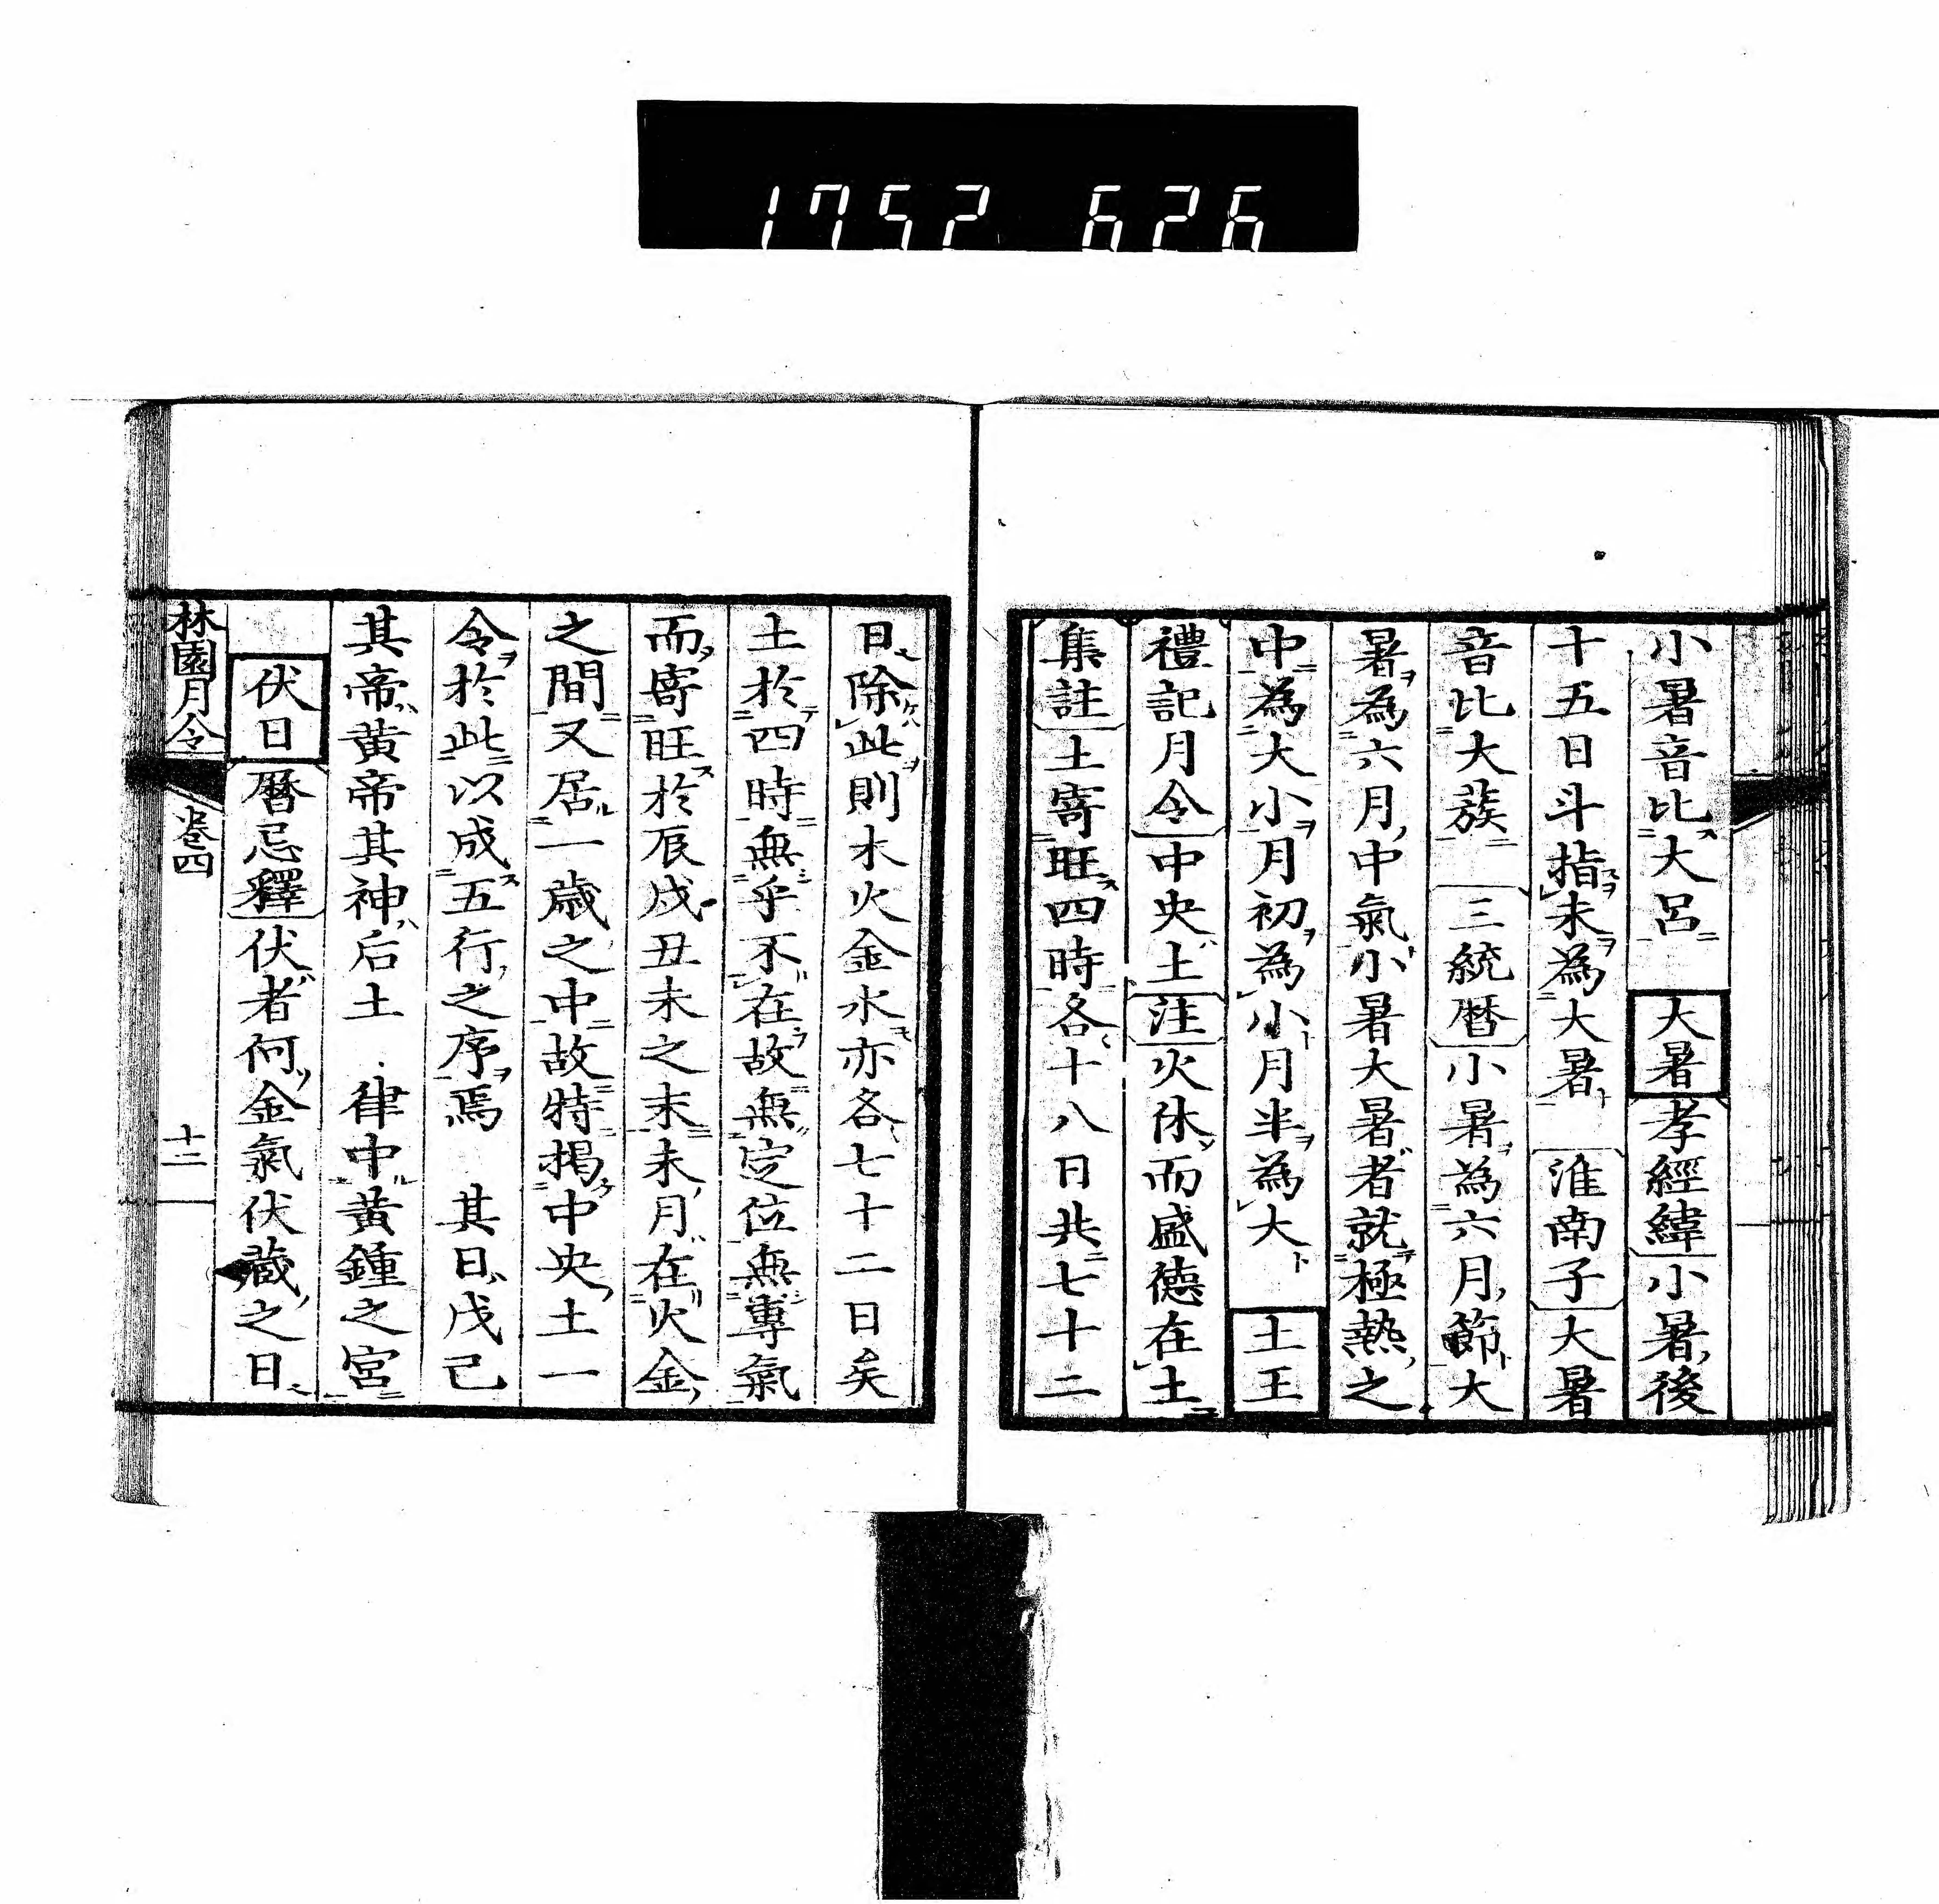 1752 626
小暑音比大呂　大暑孝經緯小暑後
十五日斗指未為大暑　淮南子大暑
音比大蔟　三統暦小暑為六月節大
暑為六月中氣小暑大暑者就極熱之
中為大小月初為小月半為大　土王
禮記月令中央土注火休而盛德在土
集註土寄旺四時各十八日共七十二
日除此則木火金水亦各七十二日矣
土於四時無乎不在故無定位無專氣
而寄旺於辰戌丑未之末未月在火金
之間又居一歳之中故特揭中央土一
令於此以成五行之序焉　其日戊己
其帝黄帝其神后土　律中黄鍾之宮
伏日暦忌釋伏者何金氣伏藏之日
林園月令　卷四　十二